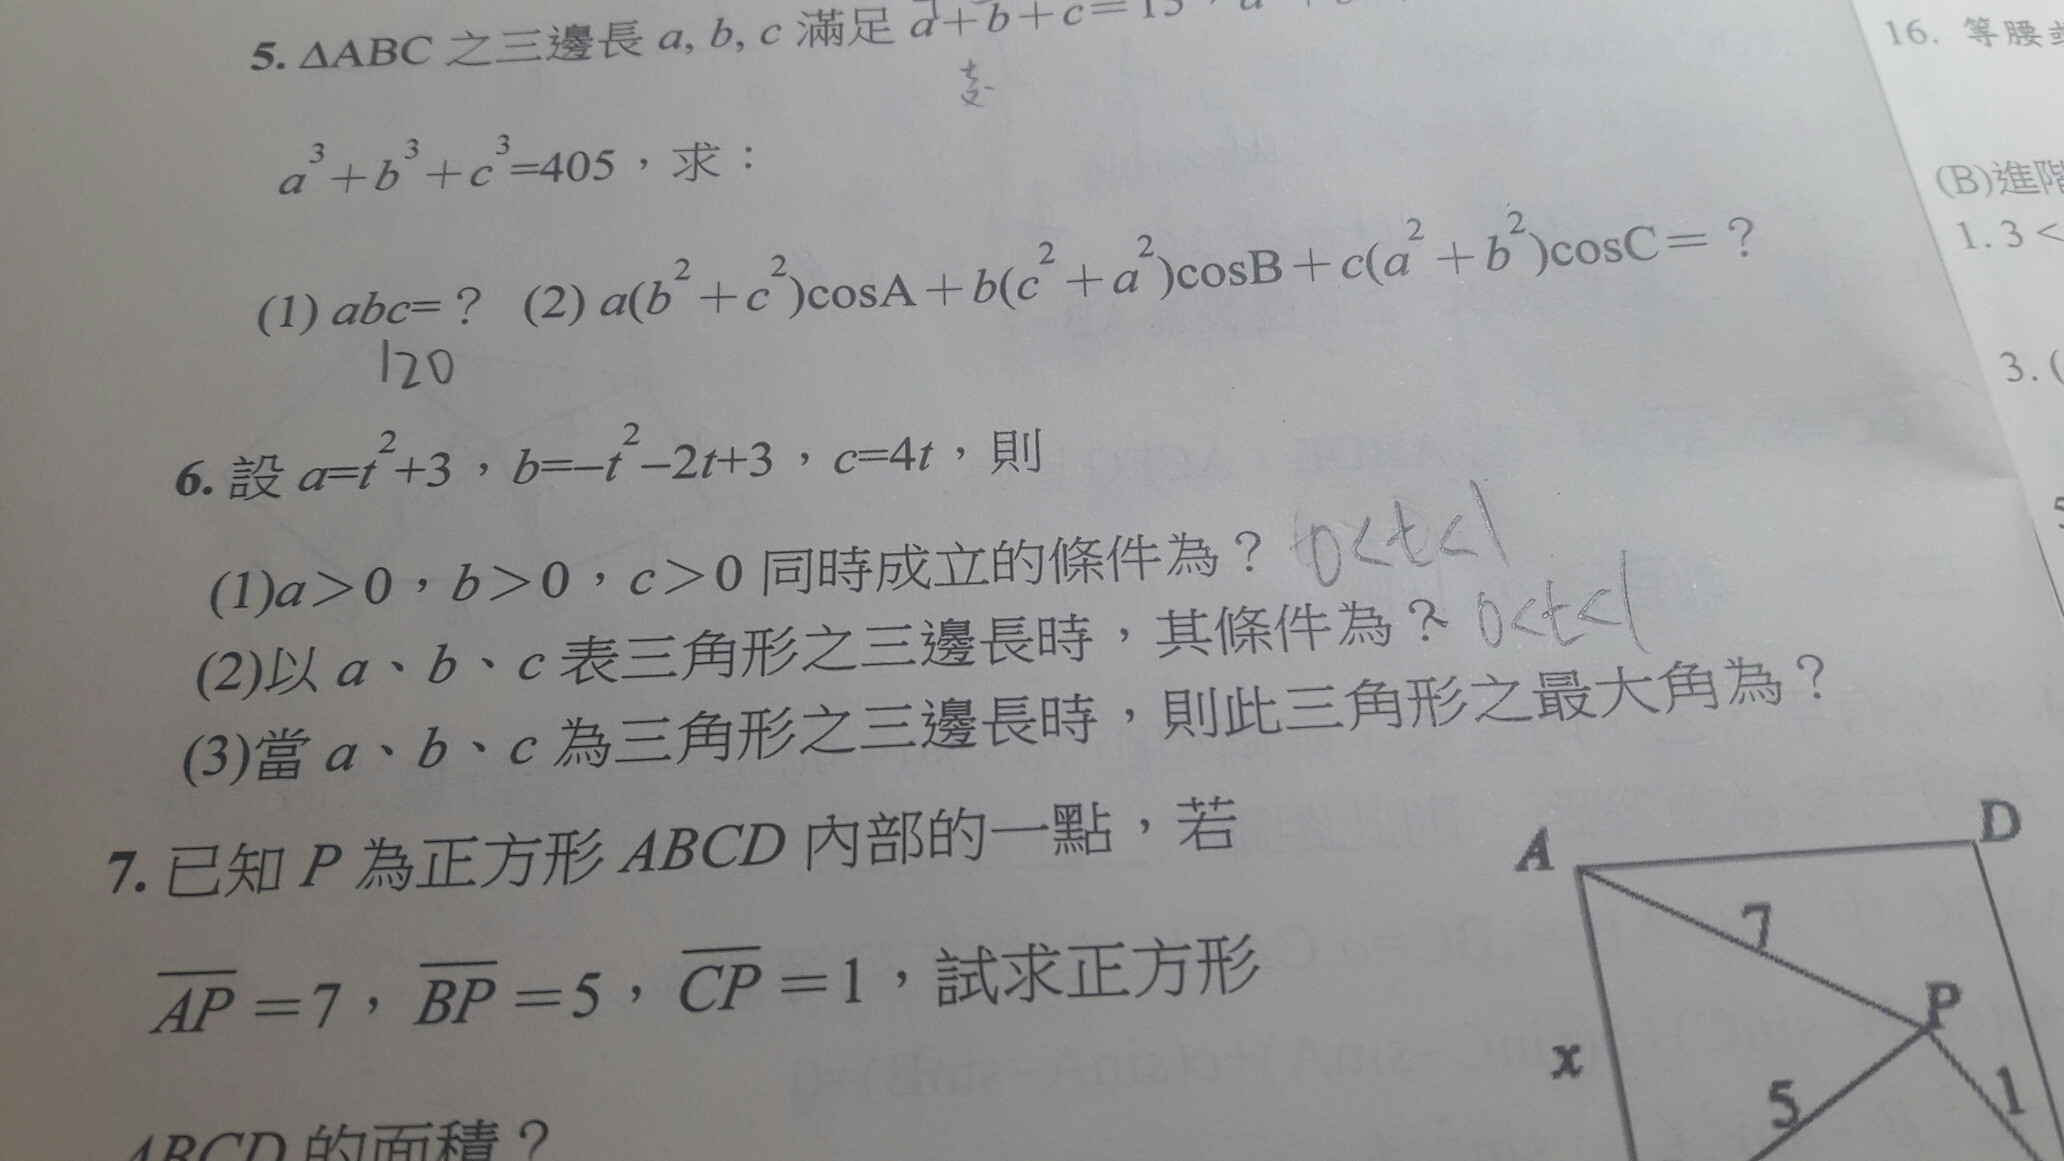 5. ΔABC 之三邊長 a, b, c 滿足 a+b+c=15，
支
a³+b³+c³=405，求：
(1) abc=？ (2) a(b²+c²)cosA+b(c²+a²)cosB+c(a²+b²)cosC=？
120
6. 設 a=t²+3，b=–t²–2t+3，c=4t，則
(1)a>0，b>0，c>0 同時成立的條件為？ 0<t<1
(2)以 a、b、c 表三角形之三邊長時，其條件為？ 0<t<1
(3)當 a、b、c 為三角形之三邊長時，則此三角形之最大角為？
7. 已知 P 為正方形 ABCD 內部的一點，若
AP=7，BP=5，CP=1，試求正方形
ABCD 的面積？
A
D
7
P
x
5
1
16. 等腰
(B)進階
1. 3 <
3. (